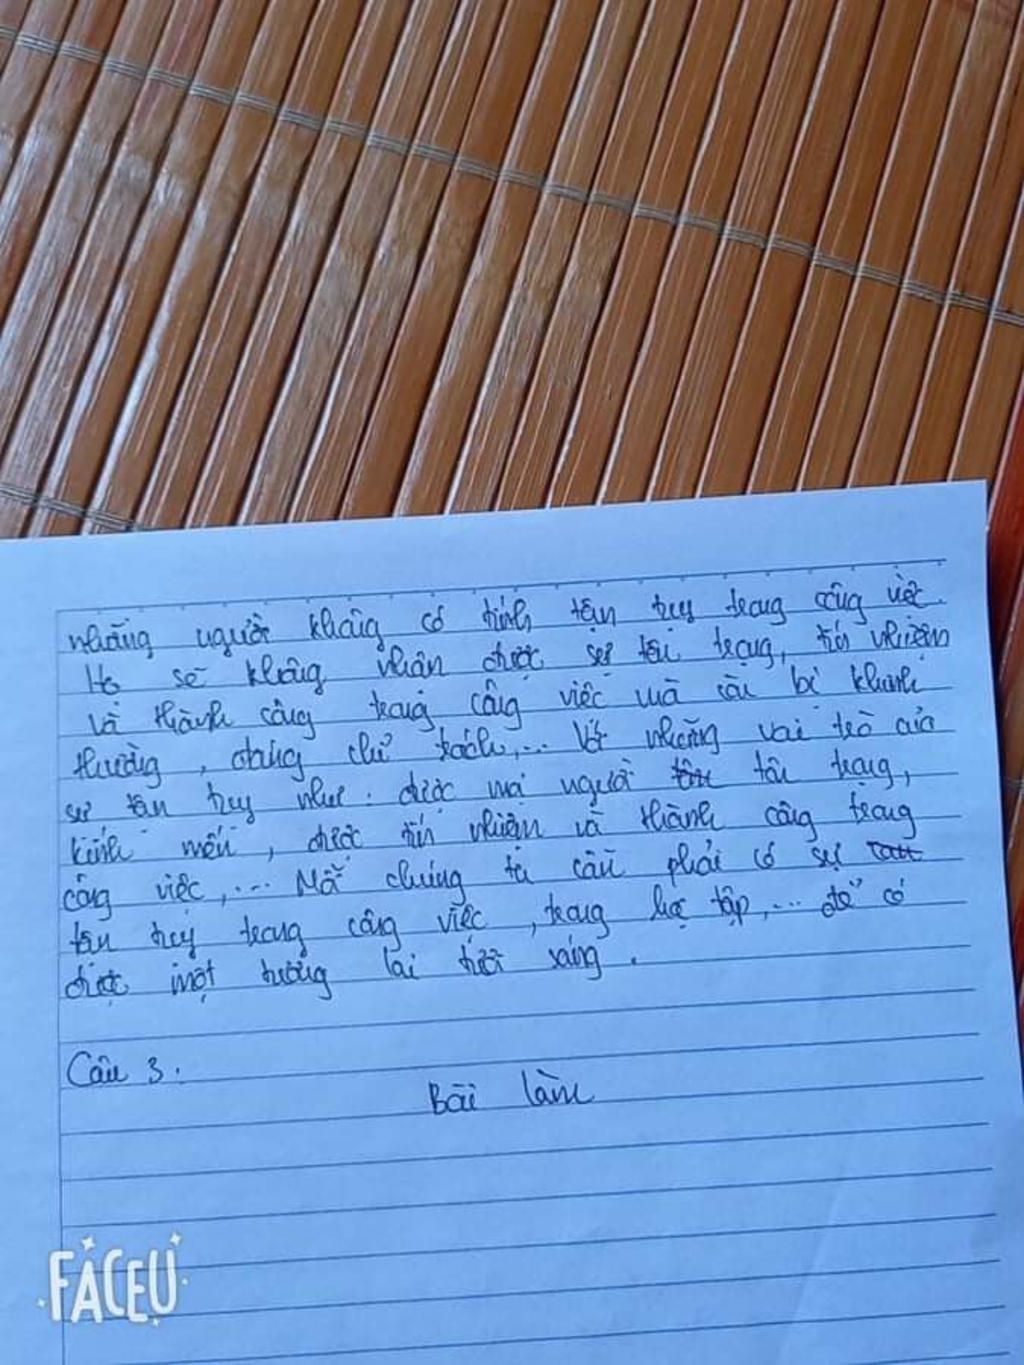 những người không có tính tận tụy trong công việc.
Họ sẽ không nhân được sự tôn trọng, tín nhiệm
và thành công trong công việc mà còn bị khinh
thường, đáng chỉ trách,... Với những vai trò của
sự tận tụy như: được mọi người tôn trọng,
kính mến, được tín nhiệm và thành công trong
công việc,... Mỗi chúng ta cần phải có sự
tận tụy trong công việc, trong học tập,... để có
được một tương lai tươi sáng.
Câu 3:
Bài làm
FACEU